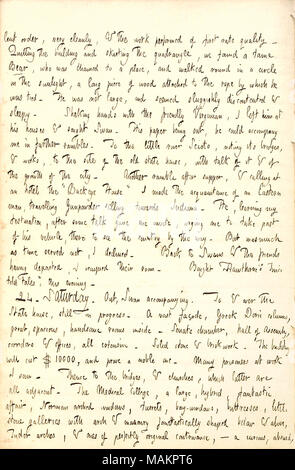 lent order, very cleanly & the work performed of first rate quality.
Quitting the building and skirting the quadrangle, we found a tame
Bear, who was chained to a place, and walked round in a circle
in the sunlight, a long piece of wood attached to the rope by which he
was tied. He was not large, and seemed sluggishly discontented &
sleepy. Shaking hands with the friendly Virginian, I left him at
his house & sought Swan. His paper being out, he could accompany
me in further rambles. To the little river Scioto, noting its bridges
& works, to the site of the old state house, with talk of it & of
the growth of the city. Another ramble after supper, & calling at
an hotel the "Buckeye House" I made the acquaintance of an Eastern
man, travelling Gunpowder selling towards Indiana. He, learning my
destination, after some talk gave me invite, urging me to take part
of his vehicle, there to see the country by the way. But inasmuch
as time served not, I declined. Back to Swan's & the friends
having departed, I resumed their room. Bought Hawthorne's Twice
told tales this evening.
24. Saturday. Out, Swan accompanying. To & over the
State house, still in progress. A vast façade, Greek Doric columns,
porch, spacious, handsome rooms inside. Senate chamber, hall of Assembly,
corridors & offices, all extensive. Solid stone & brick work. The building
will cost $10000, and prove a noble one. Many prisoners at work
I saw. Thence to the bridges & churches, which latter are
all adjacent. The Medical College, a large, hybrid fantastic
affair, Norman arched windows, turrets, bay-windows, buttresses, little
stone galleries with arch & masonry fantastically shaped below & above,
Tudor arches, & was of perfectly original contrivance, — a curious, absurd,
alamy
Image ID: MAKPT6
www.alamy.com